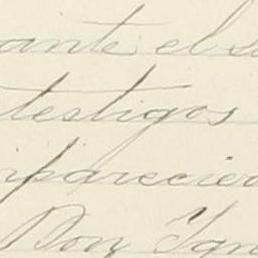 ante el
testigos
mparecier
Don Ign